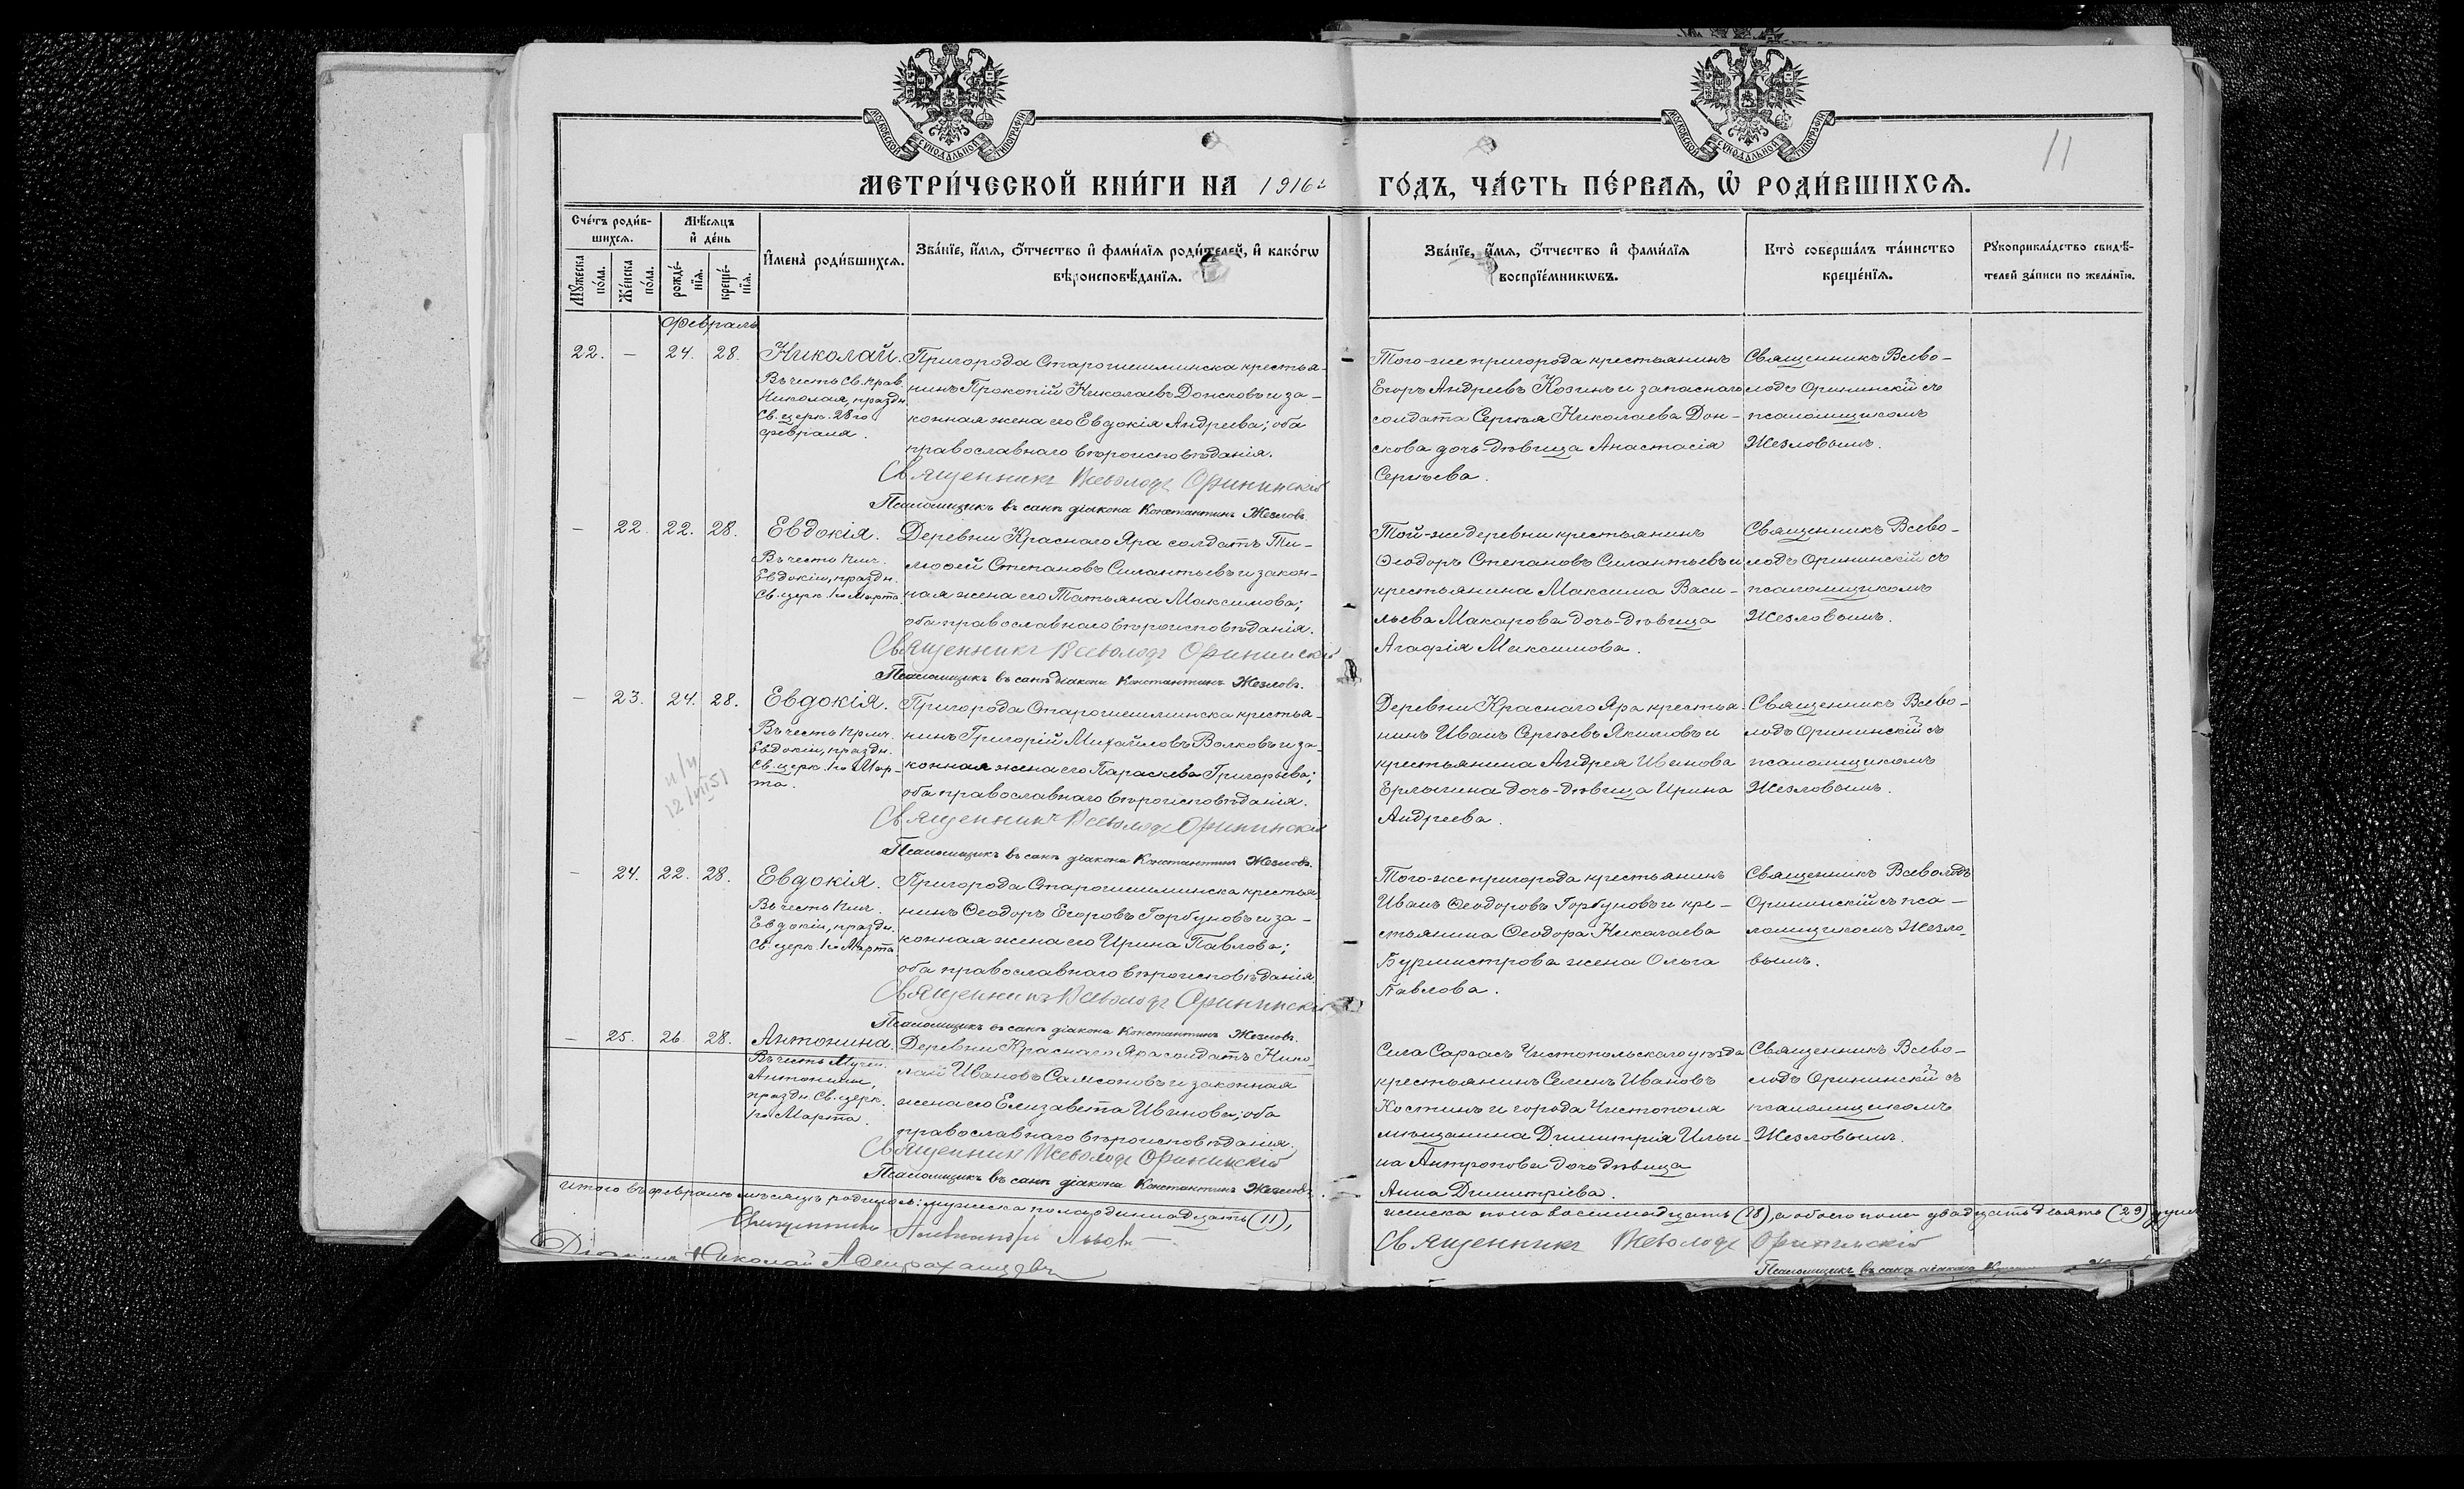 МОСКОВСКОЙ СѴНОДАЛЬНОЙ ТИПОГРАФІИ
МОСКОВСКОЙ СѴНОДАЛЬНОЙ ТИПОГРАФІИ
11
МЕТРИ́ЧЕСКОЙ КНИ́ГИ НА 1916 г ГО́ДЪ, ЧА́СТЬ ПЕ́РВАѦ, Ѡ҆ РОДИ́ВШИХСѦ.
Сче́тъ роди́в-
шихсѧ.
Мꙋ́жеска
по́ла.
Же́нска
по́ла.
Мѣ́сѧцъ
и҆ де́нь
рожде́-
нїѧ.
креще́-
нїѧ.
И҆мена̀ роди́вшихсѧ.
Зва́нїе, и҆́мѧ, ѻ҆́тчество и҆ фами́лїѧ роди́телей, и҆ како́гѡ
вѣроисповѣ́данїѧ.
Зва́нїе, и҆́мѧ, ѻ҆́тчество и҆ фами́лїѧ
воспрїе́мникѡвъ.
Кто̀ соверша́лъ та́инство
креще́нїѧ.
Рꙋкоприкла́дство свидѣ́-
телей за́писи по жела́нїю.
Февраль
22. — 24. 28. Николай.
Въ честь Св. прав.
Николая, праздн.
Св. церк. 28 го
февраля.
Пригорода Старошешминска крестья-
нинъ Прокопій Николаевъ Донсковъ и за-
конная жена его Евдокія Андреева; оба
православнаго вѣроисповѣданія.
Священникъ Всеволодъ Орининскій
Псаломщикъ въ санѣ діакона Константинъ Жезловъ.
Того-же пригорода крестьянинъ
Егоръ Андреевъ Козинъ и запаснаго
солдата Сергѣя Николаева Дон-
скова дочь-дѣвица Анастасія
Сергѣева.
Священникъ Всево-
лодъ Орининскій съ
псаломщикомъ
Жезловымъ.
— 22. 22. 28. Евдокія.
Въ честь Пмч.
Евдокіи, праздн.
Св. церк. 1 го Марта.
Деревни Краснаго Яра солдатъ Ти-
моѳей Степановъ Силантьевъ и закон-
ная жена его Татьяна Максимова;
оба православнаго вѣроисповѣданія.
Священникъ Всеволодъ Орининскій
Псаломщикъ въ санѣ діакона Константинъ Жезловъ.
Той-же деревни крестьянинъ
Ѳеодоръ Степановъ Силантьевъ и
крестьянина Максима Васи-
льева Макарова дочь-дѣвица
Агафія Максимова.
Священникъ Всево-
лодъ Орининскій съ
псаломщикомъ
Жезловымъ.
— 23. 24. 28. Евдокія.
Въ честь Прмч.
Евдокіи, праздн.
Св. церк. 1 го Мар-
та.
12/VII 51
Пригорода Старошешминска крестья-
нинъ Григорій Михайловъ Волковъ и за-
конная жена его Параскева Григорьева;
оба православнаго вѣроисповѣданія.
Священникъ Всеволодъ Орининскій
Псаломщикъ въ санѣ діакона Константинъ Жезловъ.
Деревни Краснаго Яра крестья-
нинъ Иванъ Сергѣевъ Якимовъ и
крестьянина Андрея Иванова
Ерлыгина дочь-дѣвица Ирина
Андреева.
Священникъ Всево-
лодъ Орининскій съ
псаломщикомъ
Жезловымъ.
— 24. 22. 28. Евдокія.
Въ честь Пмч.
Евдокіи, праздн.
Св. церк. 1 го Марта
Пригорода Старошешминска крестья
нинъ Ѳеодоръ Егоровъ Горбуновъ и за-
конная жена его Ирина Павлова;
оба православнаго вѣроисповѣданія
Священникъ Всеволодъ Орининскій
Псаломщикъ въ санѣ діакона Константинъ Жезловъ.
Того-же пригорода крестьянинъ
Иванъ Ѳеодоровъ Горбуновъ и кре-
стьянина Ѳеодора Николаева
Бурмистрова жена Ольга
Павлова.
Священникъ Всеволодъ
Орининскій съ пса-
ломщикомъ Жезло-
вымъ.
— 25. 26. 28. Антонина.
Въ честь Мучен.
Антонины,
праздн. Св. церк.
1 го Марта.
Деревни Краснаго Яра солдатъ Нико-
лай Ивановъ Самсоновъ и законная
жена его Елизавета Иванова; оба
православнаго вѣроисповѣданія.
Священникъ Всеволодъ Орининскій
Псаломщикъ въ санѣ діакона Константинъ Жезловъ.
Села Саргасъ Чистопольскаго уѣзда
крестьянинъ Семенъ Ивановъ
Костинъ и города Чистополя
мѣщанина Димитрія Ильи-
на Антропова дочь дѣвица
Анна Димитріева.
Священникъ Всево-
лодъ Орининскій съ
псаломщикомъ
Жезловымъ.
Итого въ февралѣ мѣсяцѣ родилось: мужеска пола одиннадцать (11),
женска пола восемнадцать (18), а обоего пола двадцать девять (29) душъ
Священникъ Александръ Львовъ
Священникъ Всеволодъ Орининскій
Діаконъ Николай
Псаломщикъ въ санѣ діакона